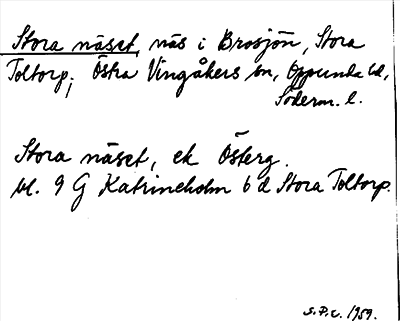 Stora näset, näs i Brosjön, Stora
Toltorp; Östra Vingåkers sn, Oppunda hd,
Söderm. l.
Stora näset, ek Österg.
bl. 9 G Katrineholm 6 d Stora Toltorp.
S.P.C. 1959.